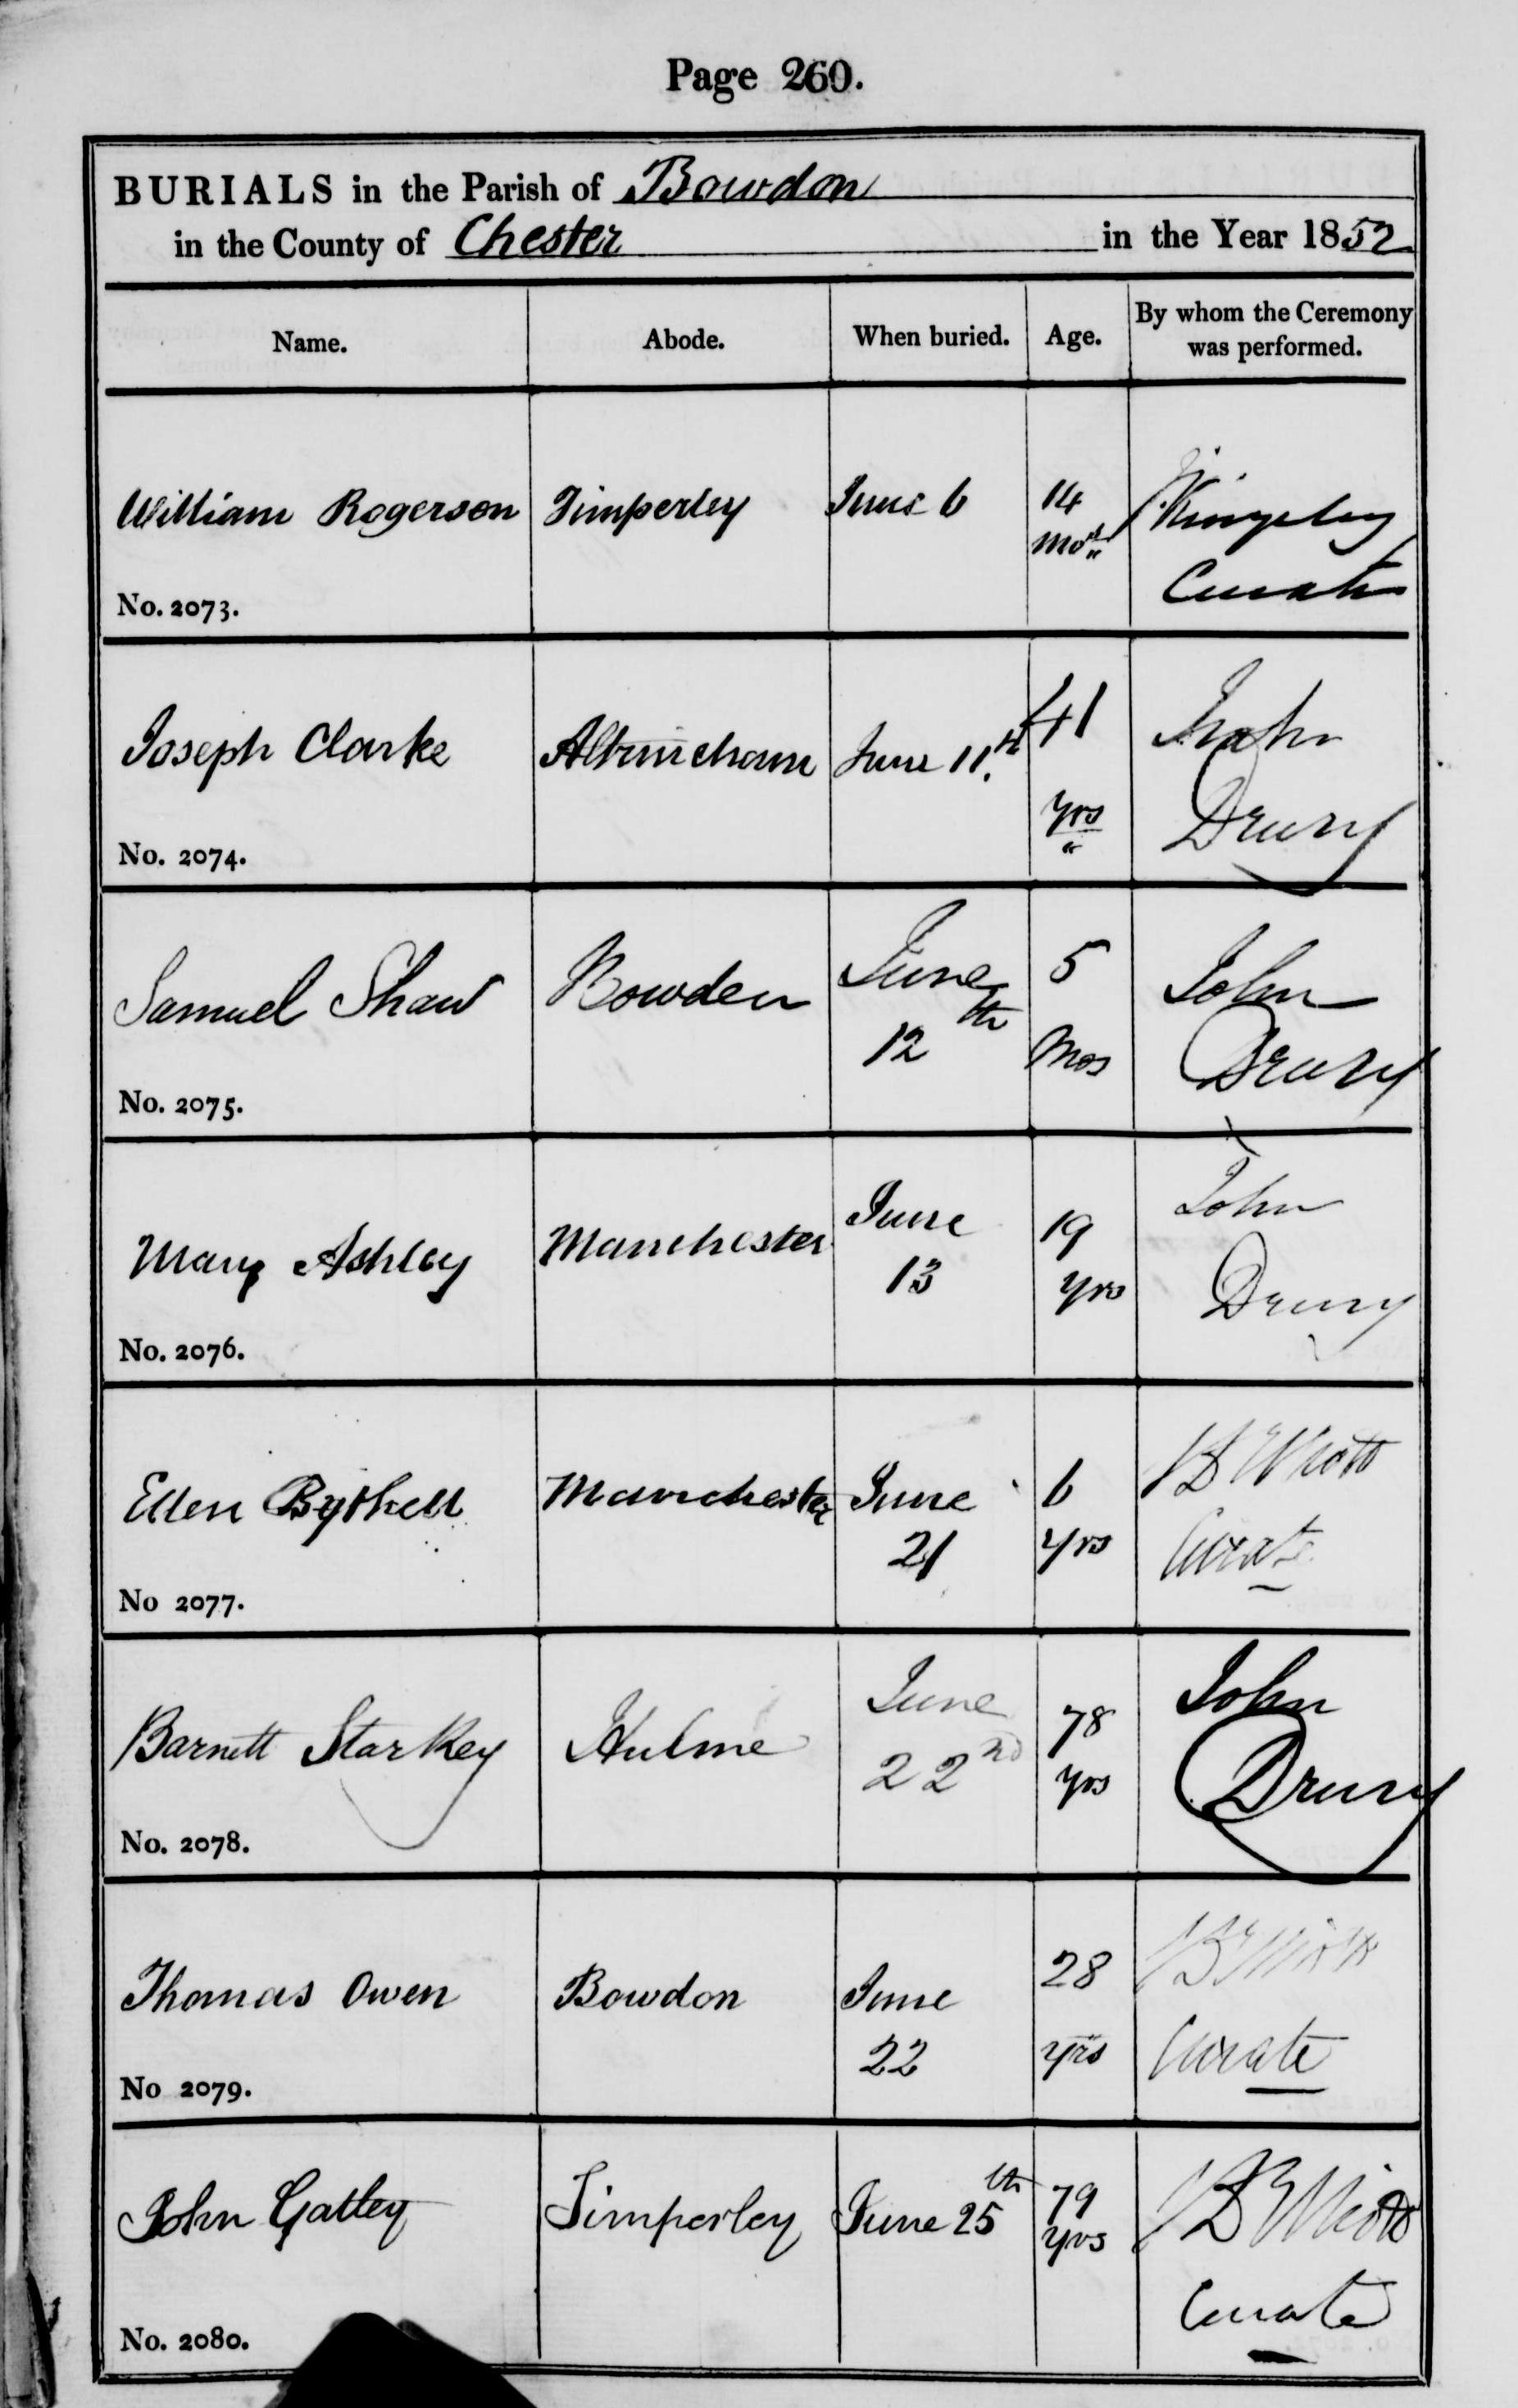 Page 260.
BURIALS in the Parish of Bowdon
in the County of Chester in the Year 1852
Name. Abode. When buried. Age. By whom the Ceremony was performed.
William Rogerson Timperley June 6 14 Mos Kingsley Curate
No. 2073.
Joseph Clarke Altrincham June 11th 41 yrs John Drury
No. 2074.
Samuel Shaw Bowden June 12th 5 Mos John Drury
No. 2075.
Mary Ashley Manchester June 13 19 yrs John Drury
No. 2076.
Ellen Bythell Manchester June 21 6 yrs Curate
No 2077.
Barnett Starkey Hulme June 22nd 78 yrs John Drury
No. 2078.
Thomas Owen Bowdon June 22 28 yrs Curate
No 2079.
John Gatley Timperley June 25th 79 yrs Curate
No. 2080.